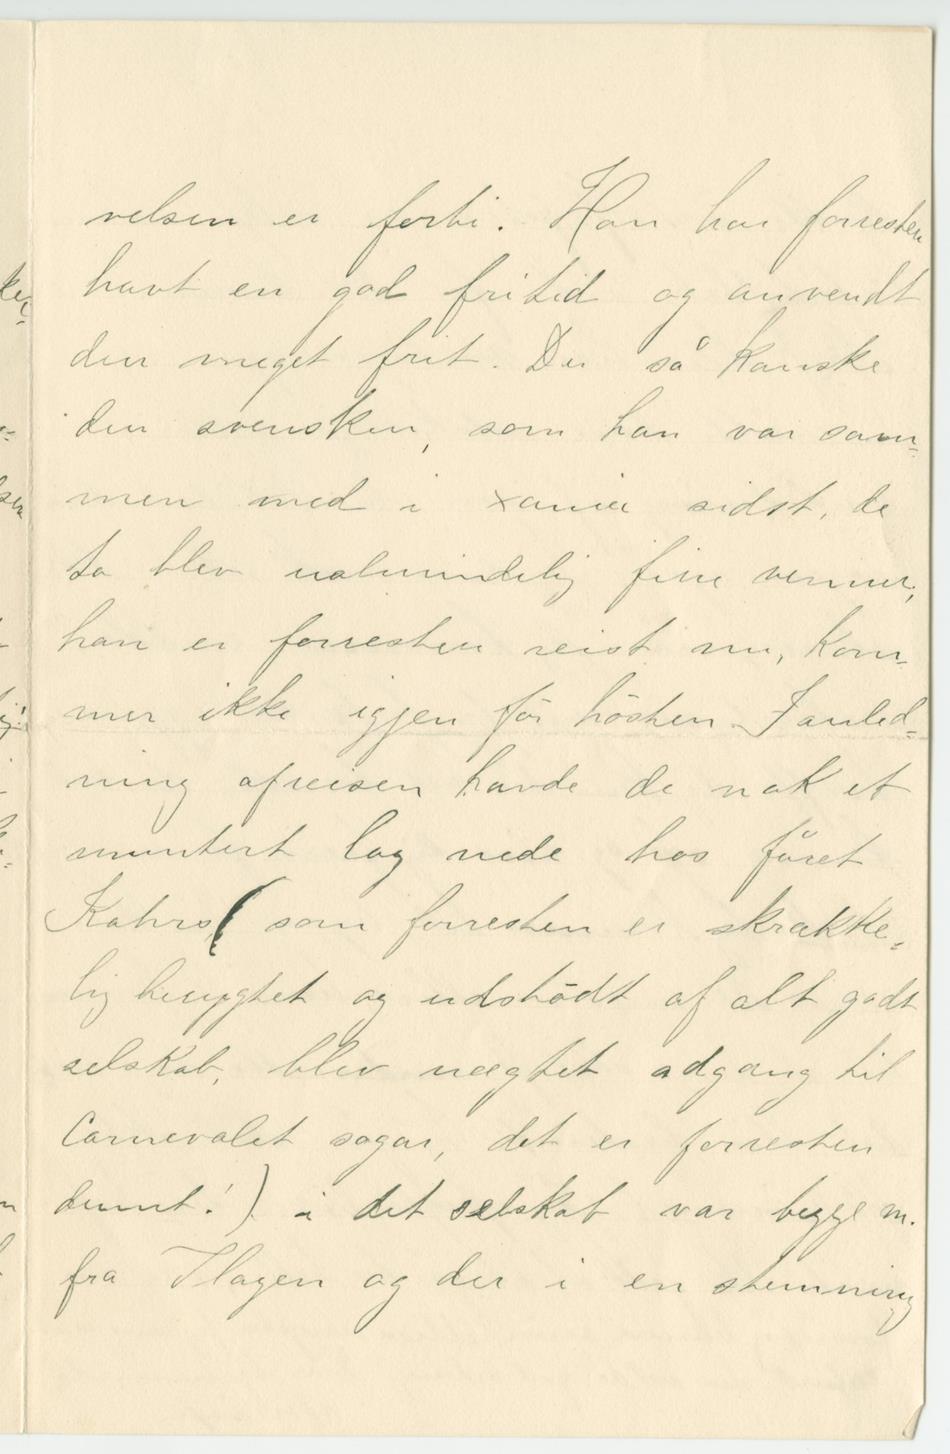 velsen er forbi. Han har forresten
havt en god fritid og anvendt
den meget frit. Du så kanske
den svensken, som han var sam-
men med i xania sidst, de
to blev ualmindelig fine venner,
han er forresten reist nu, kom-
mer ikke igjen för hösten. I anled-
ning afreisen havde de nok et
muntert lag nede hos
Kahrs, (som forresten er skrække-
lig berygtet og udstödt af alt godt
selskab, blev nægtet adgang til
Carnevalet sogar, det er forresten
dumt!) i det selskab var begge m.
fra Hagen og der i en stemning